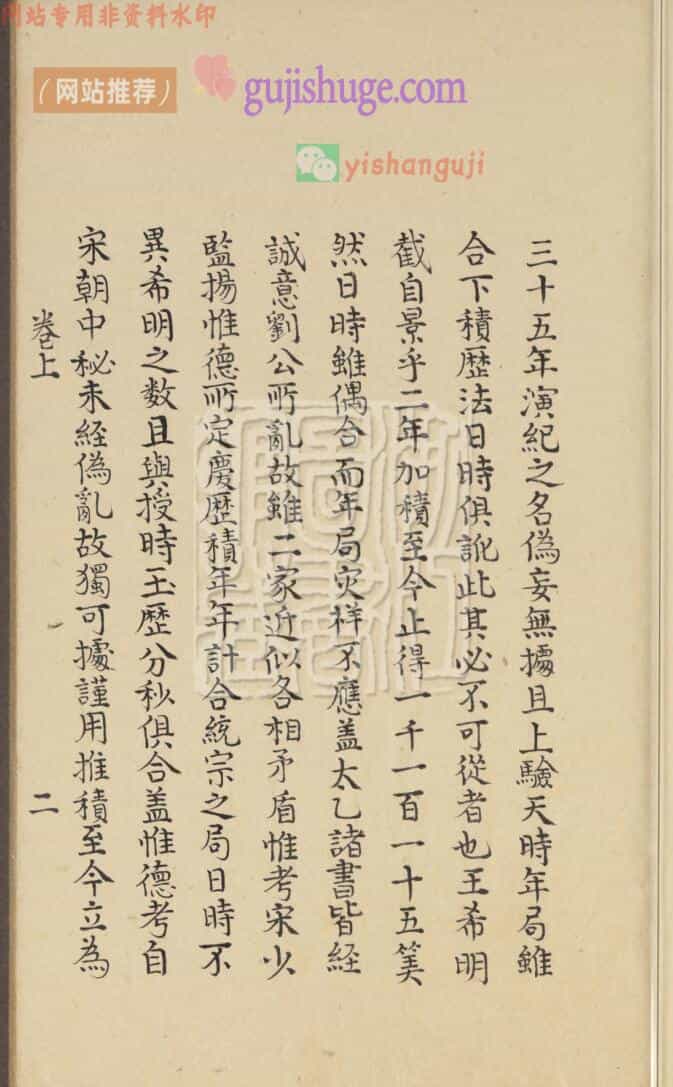 网站专用非资料水印
（网站推荐）
gujishuge.com
yishanguji
三十五年演紀之名偽妄無據且上驗天時年局雖
合下積歷法日時俱訛此其必不可從者也王希明
截自景乎二年加積至今止得一千一百一十五筭
然日時雖偶合而年局灾祥不應盖太乙諸書皆經
誠意劉公所亂故雖二家近似各相矛盾惟考宋少
監揚惟德所定慶歷積年年計合統宗之局日時不
異希明之数且與授時玉歷分秒俱合盖惟德考自
宋朝中秘未經偽亂故獨可據謹用推積至今立為
卷上
二